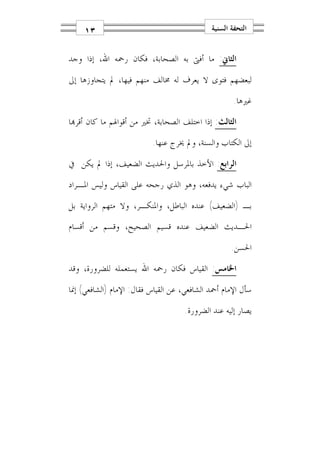 التحفة السنية
١٣
الثاني: ما أفتى به الصحابة، فكان رحمه الله، إذا وجد
لبعضهم فتوى لا يعرف له مخالف منهم فيها، لم يتجاوزها إلى
غيرها.
الثالث: إذا اختلف الصحابة، تخير من أقوالهم ما كان أقربها
إلى الكتاب والسنة، ولم يخرج عنها.
الرابع: الأخذ بالمرسل والحديث الضعيف، إذا لم يكن في
الباب شيء يدفعه، وهو الذي رجحه على القياس وليس المــراد
بــ (الضعيف) عنده الباطل، والمنكــر، ولا متهم الرواية بل
الحــديث الضعيف عنده قسيم الصحيح، وقسم من أقسام
الحسن.
الخامس: القياس فكان رحمه الله يستعمله للضرورة، وقد
سأل الإمام أحمد الشافعي، عن القياس فقال: الإمام (الشافعي) إنما
يصار إليه عند الضرورة.